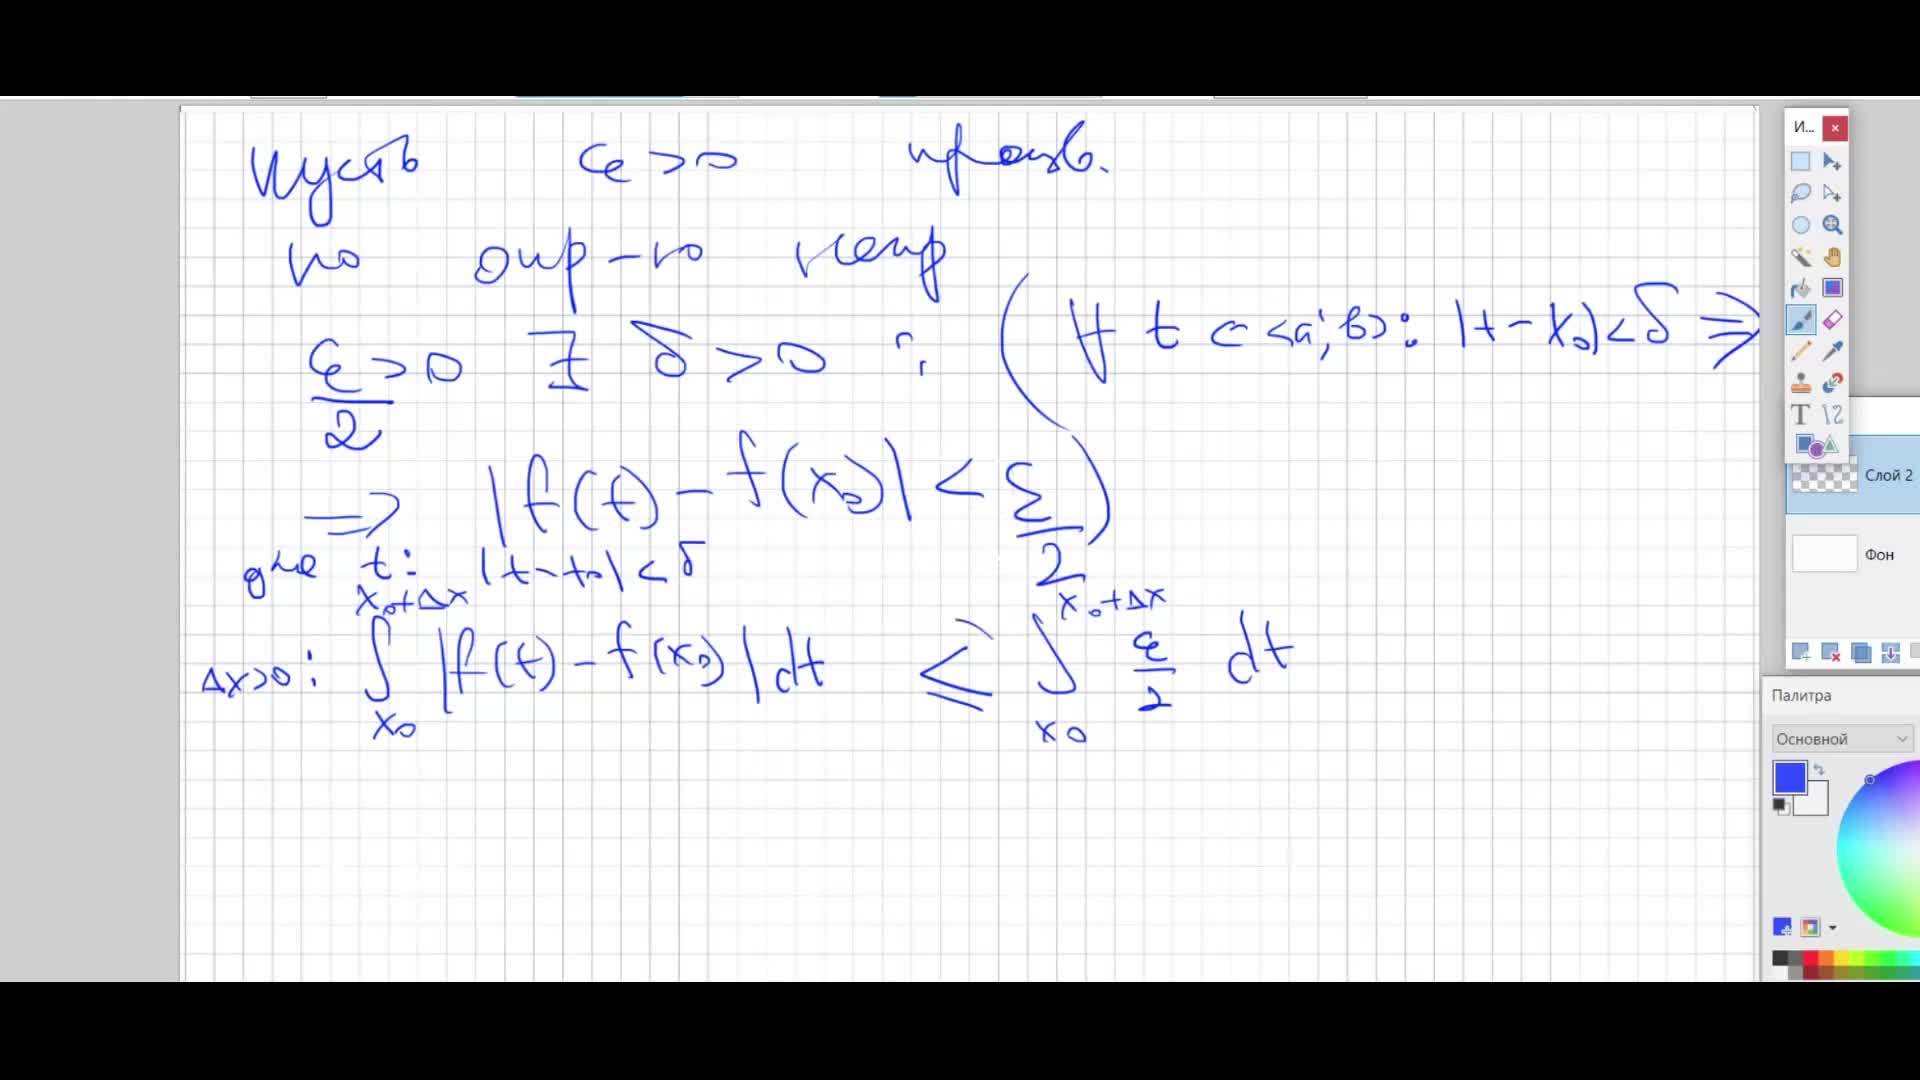 Пусть ε > 0 произв.
по опр-ю непр
ε/2 > 0 ∃ δ > 0 : ( ∀ t ∈ <a; b>: |t - x₀| < δ ⇒
⇒ |f(t) - f(x₀)| < ε/2 )
для t: |t - t₀| < δ
Δx>0: ∫_{x₀}^{x₀+Δx} |f(t) - f(x₀)| dt ≤ ∫_{x₀}^{x₀+Δx} ε/2 dt
И...
Слой 2
Фон
Палитра
Основной